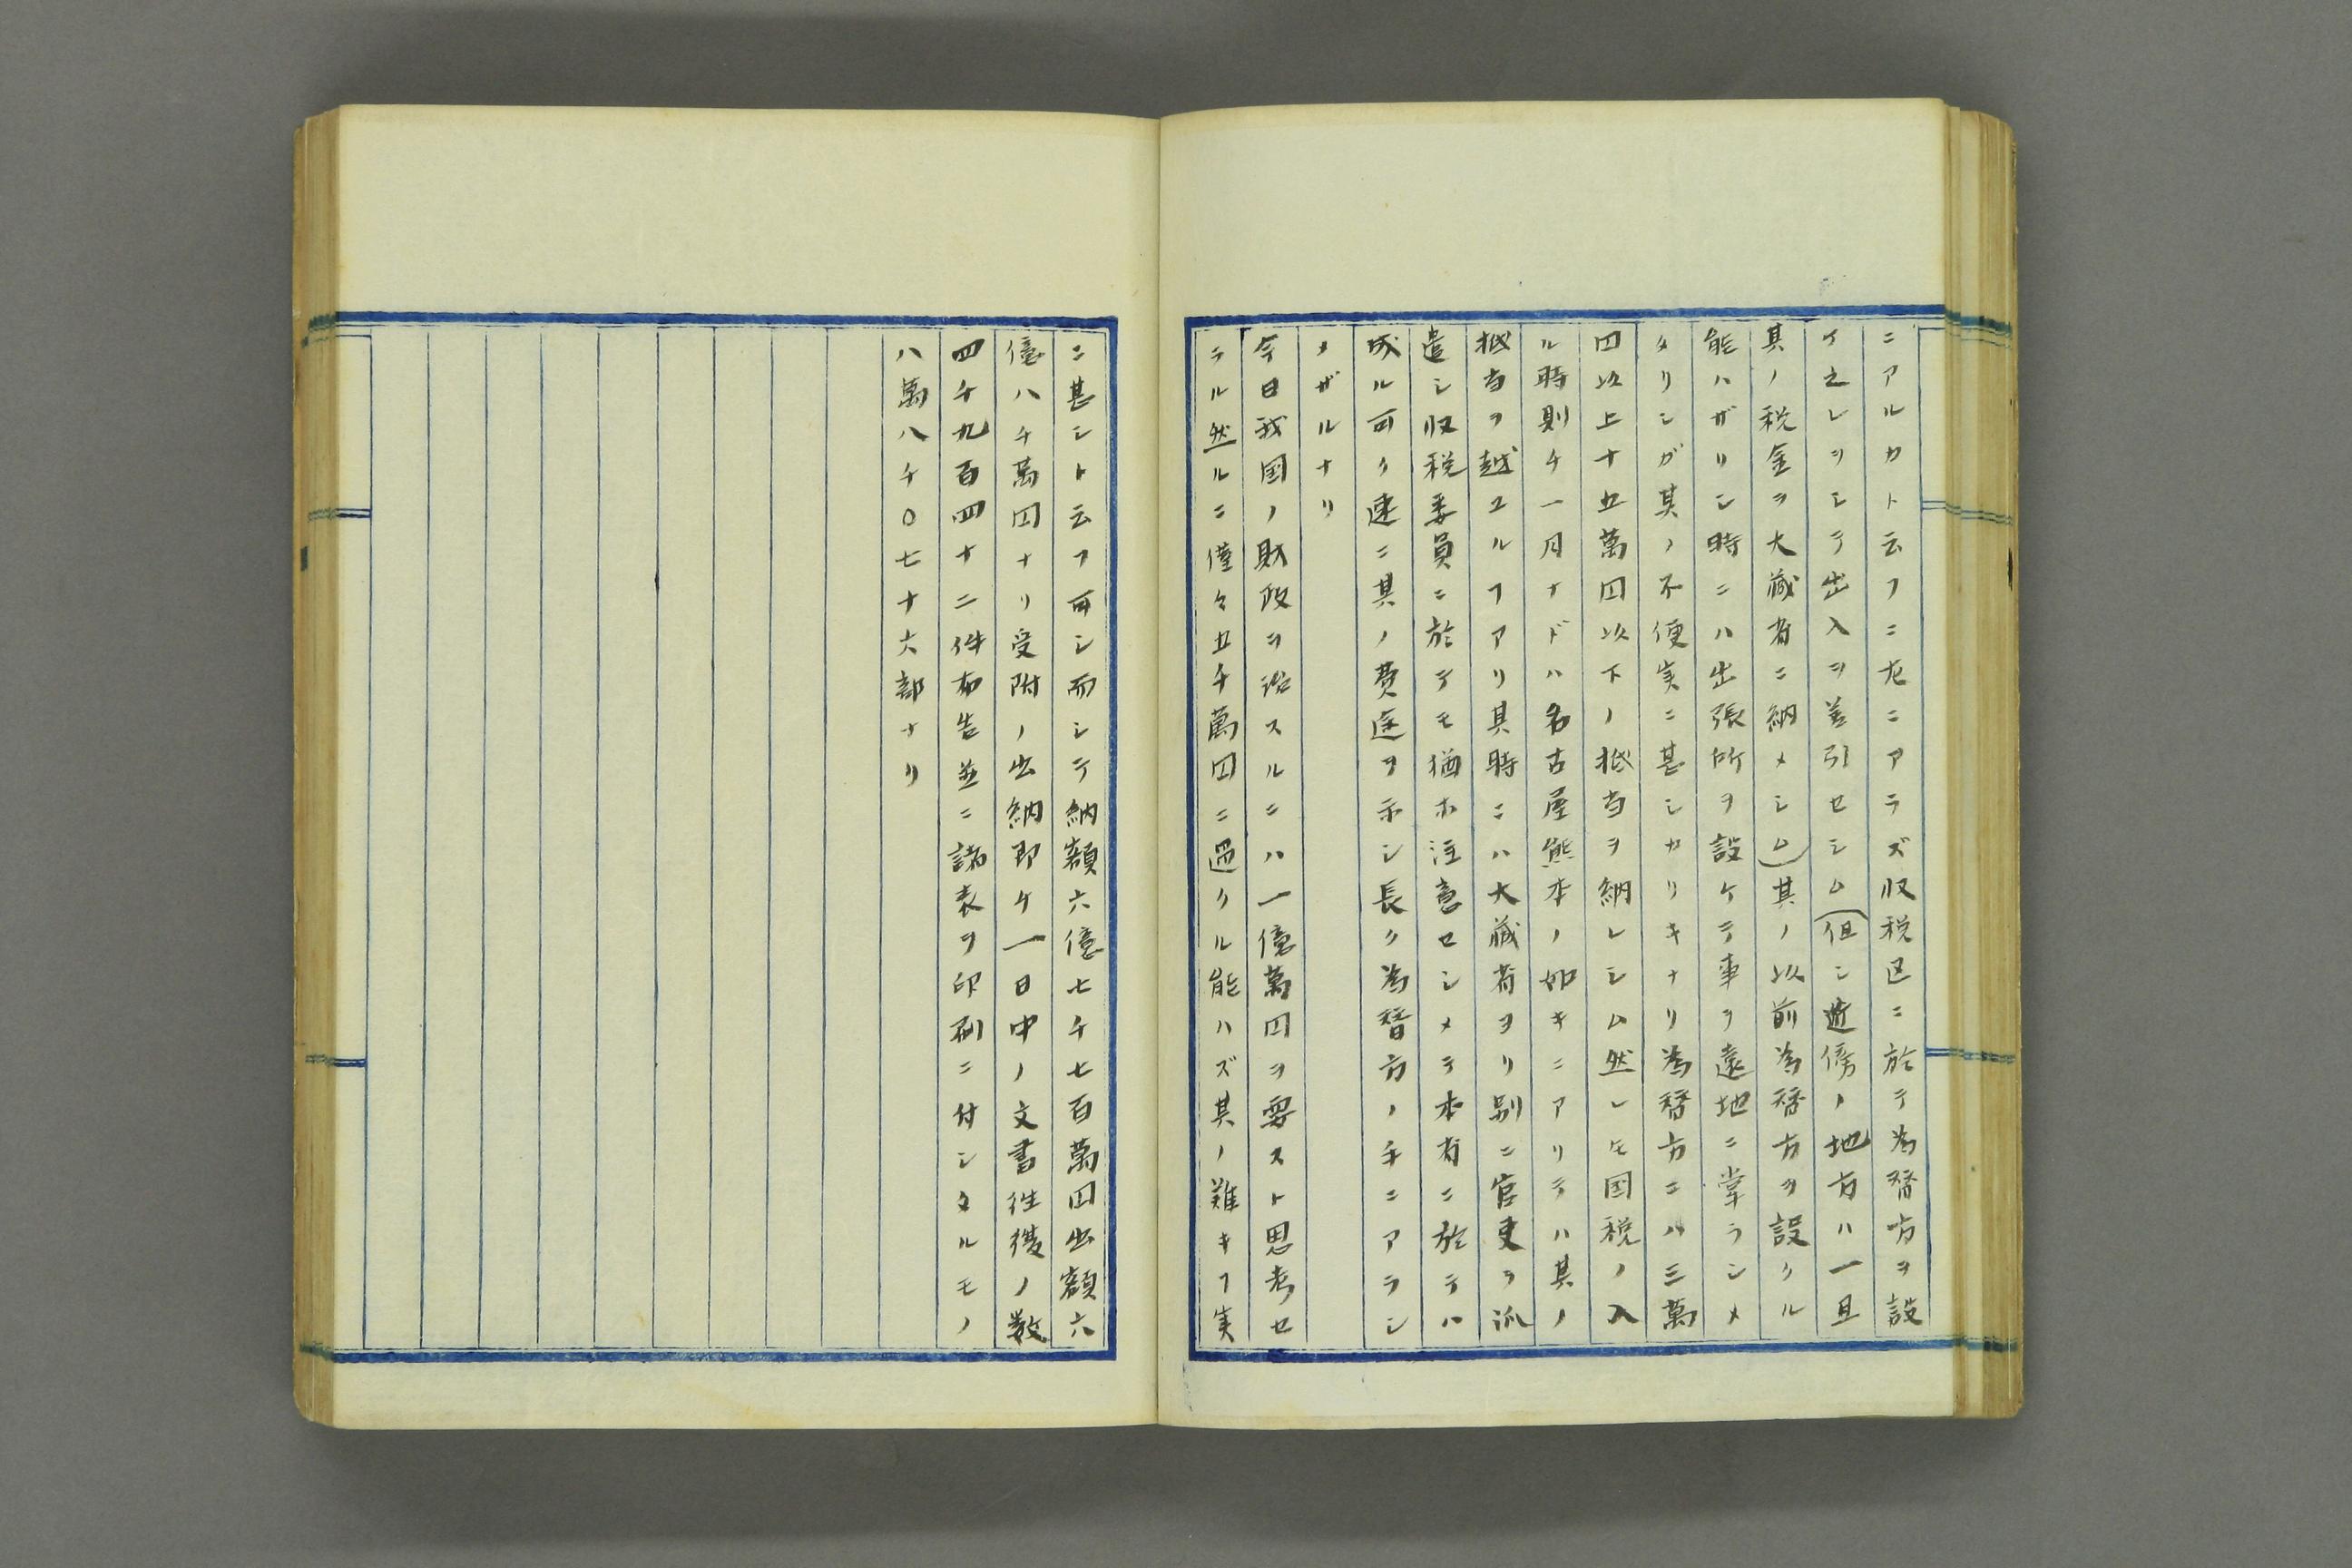 ニアルカト云フニ左ニアラズ収税区ニ於テ為替方ヲ設
ケ之レヲシテ出入ヲ差引セシム(但シ近傍ノ地方ハ一旦
其ノ税金ヲ大蔵省ニ納メシム)其ノ以前為替方ヲ設クル
能ハザリシ時ニハ出張所ヲ設ケテ事ヲ遠地ニ掌ラシメ
タリシガ其ノ不便実ニ甚シカリキナリ為替方ニハ三萬
円以上十五萬円以下ノ抵当ヲ納レシム然レモ国税ノ入
ル時則チ一月ナドハ名古屋熊本ノ如キニアリテハ其ノ
抵当ヲ越ユルヿアリ其時ニハ大蔵省ヨリ別ニ官吏ヲ派
遣シ収税委員ニ於テモ猶ホ注意セシメテ本省ニ於テハ
成ル可ク速ニ其ノ費途ヲ示シ長ク為替方ノ手ニアラシ
メザルナリ
今日我国ノ財政ヲ治スルニハ一億萬円ヲ要スト思考セ
ラル然ルニ僅々五千萬円ニ過クル能ハズ其ノ難キヿ実
ニ甚シト云フ可シ而シテ納額六億七千七百萬円出額六
億八千萬円ナリ受附ノ出納即ケ一日中ノ文書往復ノ数
四千九百四十二件布告並ニ諸表ヲ印刷ニ付シタルモノ
八萬八千〇七十六部ナリ